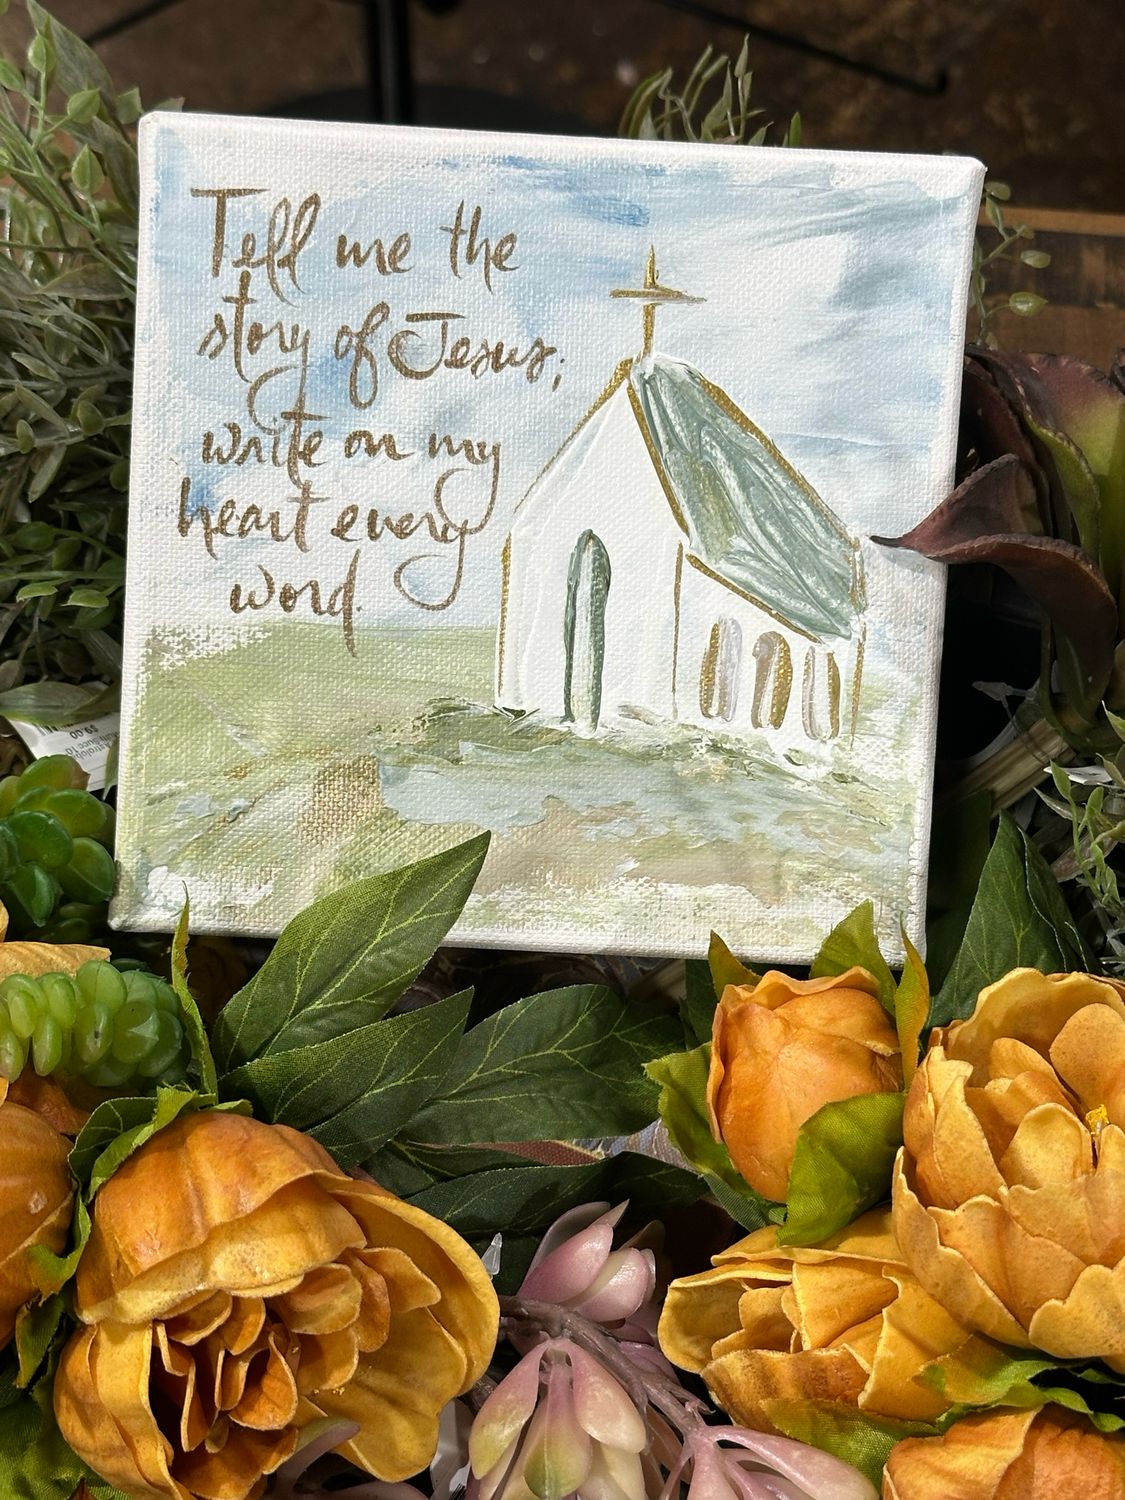 Tell me the
story of Jesus;
write on my
heart every
word.